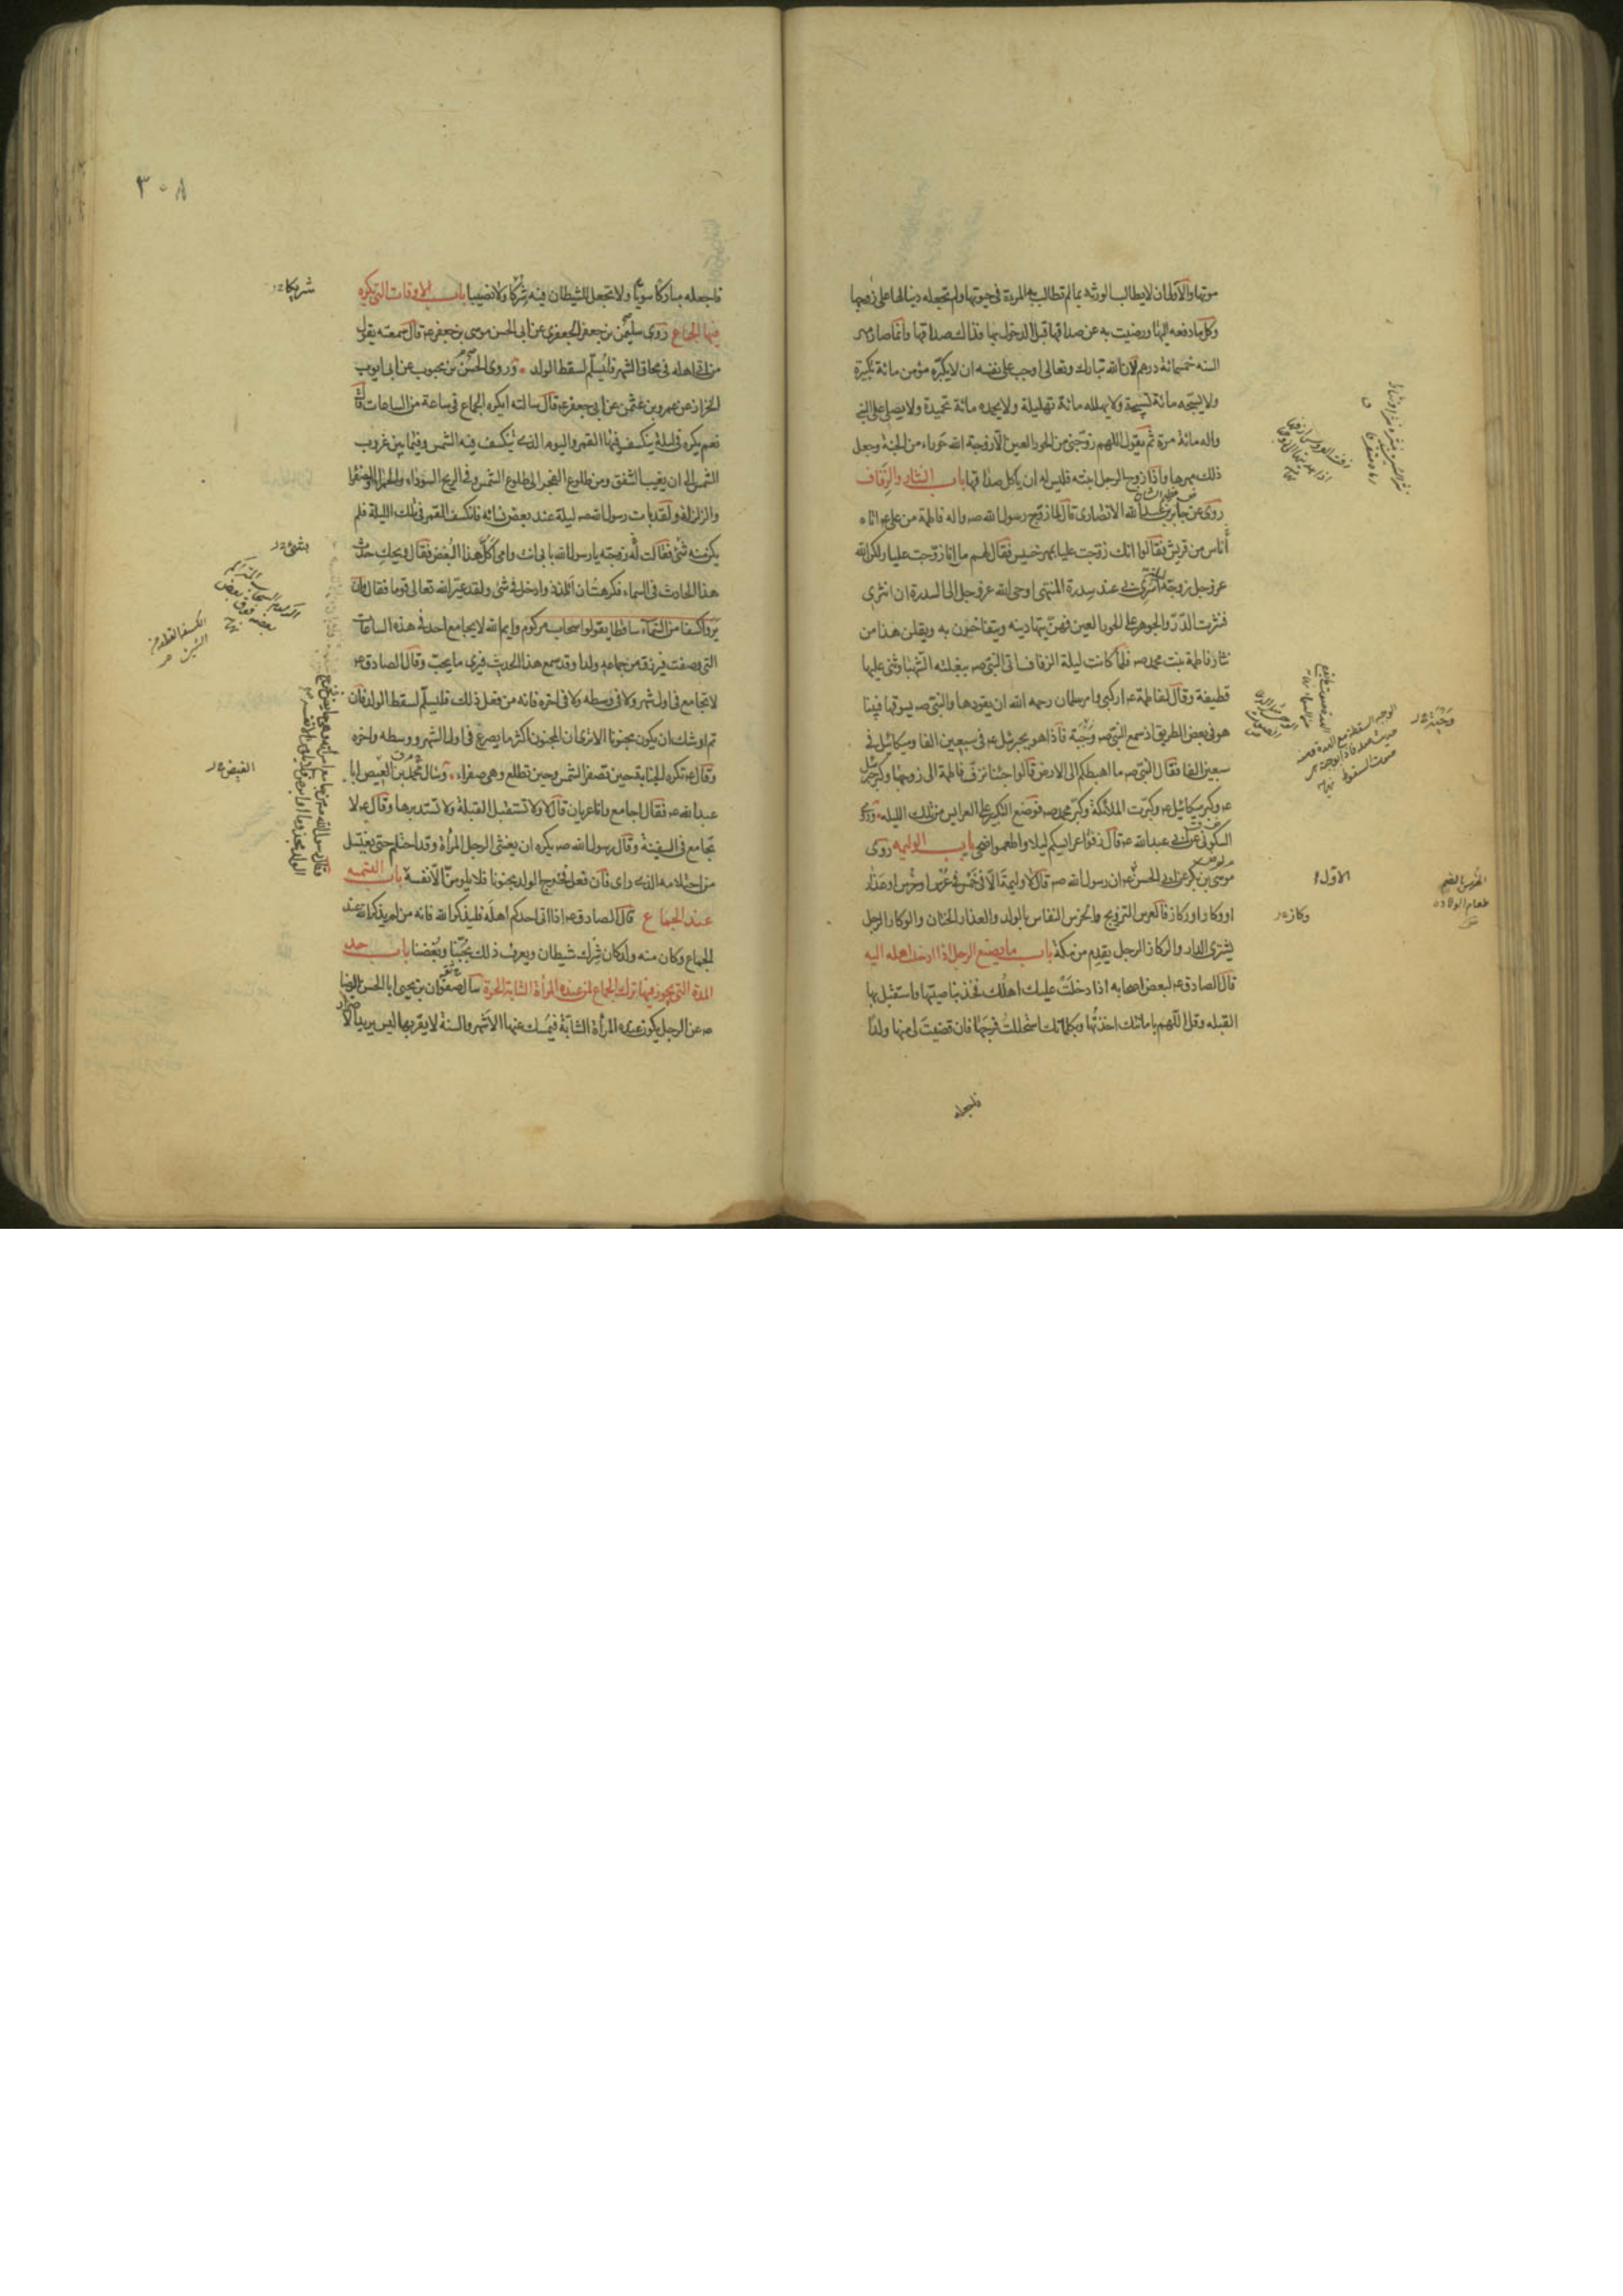 موتها والاولى ان لا يطالب الورثة بما لم تطالب به المرءة في حيوتها ولم تجعله دينا لها على زوجها
وكل ما دفعه اليها ورضيت به عن صداقها قبل الدخول بها فذاك صداقها وانما صار مهر
السنه خمسمائة درهم لان الله تبارك وتعالى اوجب على نفسه ان لا يكبّره مؤمن مائة تكبيرة
ولا يسبّحه مائة تسبيحة ولا يهلله مائة تهليلة ولا يحمده مائة تحميدة ولا يصلى على النبي
واله مائة مرة ثم يقول اللهم زوّجني من الحور العين الا زوجه الله حوراء من الجنة وجعل
ذلك مهرها واذا زوج الرجل ابنته فليس له ان ياكل صداقها باب النثار والزفاف
روى عن جابر بن عبد الله الانصارى قال لما زوّج رسول الله صه واله فاطمة من على ع اتاه
أناس من قريش فقالوا انك زوّجت عليا بمهر خسيس فقال لهم ما انا زوّجت عليا ولكن الله
عز وجل زوجه ليلة اسرى بى عند سدرة المنتهى اوحى الله عز وجل الى السدرة ان انثرى
فنثرت الدّرّ والجوهر على الحور العين فهنّ يتهادينه ويتفاخرن به ويقلن هذا من
نثار فاطمة بنت محمد صه فلما كانت ليلة الزفاف اتى النبى صه ببغلته الشهباء وثنى عليها
قطيفة وقال لفاطمة ع اركبى وامر سلمان رحمه الله ان يقودها والنبى صه يسوقها فبينا
هو فى بعض الطريق اذ سمع النبى صه وجبة فاذا هو بجبرئيل ع فى سبعين الفا وميكائيل فى
سبعين الفا فقال النبى صه ما اهبطكم الى الارض قالوا جئنا نزفّ فاطمة الى زوجها وكبر جبرئيل
ع وكبر ميكائيل ع وكبرت الملائكة وكبّر محمد صه فوضع التكبير على العرايس من تلك الليله وروى
السكونى عن ابى عبد الله ع قال زفوا عرايسكم ليلا واطعموا ضحى باب الوليمه روى
موسى بن بكر عن ابى الحسن ع ان رسول الله صه قال لا وليمة الا فى خمس فى عرس او خرس او عذار
او وكار او ركاز فالعرس التزويج والخرس النفاس بالولد والعذار الختان والوكار الرجل
يشترى الدار والركاز الرجل يقدم من مكة باب ما يصنع الرجل اذا ادخلت اهله اليه
قال الصادق ع لبعض اصحابه اذا دخلت عليك اهلك فخذ بناصيتها واستقبل بها
القبله وقل اللهم بامانتك اخذتها وبكلماتك استحللت فرجها فان قضيت لى منها ولدا
فاجعله
وجبة
الاول
وكاز
الخرس بالضم
طعام الولادة
٣٠٨
فاجعله مباركا سويّا ولا تجعل للشيطان فيه شركا ولا نصيبا باب الاوقات التى يكره
فيها الجماع روى سليمن بن جعفر الجعفرى عن ابى الحسن موسى بن جعفر ع قال سمعته يقول
من اتى اهله فى محاق الشهر فليسلّم لسقط الولد وروى الحسن بن محبوب عن ابى ايوب
الخزاز عن عمرو بن عثمن عن ابى جعفر ع قال سالته ايكره الجماع فى ساعة من الساعات قال
نعم يكره فى ليلة ينكسف فيها القمر واليوم الذى ينكسف فيه الشمس وفيما بين غروب
الشمس الى ان يغيب الشفق ومن طلوع الفجر الى طلوع الشمس وفى الريح السوداء والحمراء والصفراء
والزلزلة ولقد بات رسول الله صه ليلة عند بعض نسائه فانكسف القمر فى تلك الليلة فلم
يكن منه شئ فقالت له زوجته يا رسول الله بابى انت وامى اكل هذا البغض فقال ويحك حدث
هذا الحادث فى السماء فكرهت ان اتلذذ وادخل فى شئ ولقد عيّر الله تعالى قوما فقال وان
يروا كسفا من السماء ساقطا يقولوا سحاب مركوم وايم الله لا يجامع احد فى هذه الساعات
التى وصفت فيرزق من جماعه ولدا وقد سمع هذا الحديث فيرى ما يحبّ وقال الصادق ع
لا تجامع فى اول شهر ولا فى وسطه ولا فى اخره فانه من فعل ذلك فليسلّم لسقط الولد فان
تم اوشك ان يكون مجنونا الا ترى ان المجنون اكثر ما يصرع فى اول الشهر ووسطه واخره
وقال ع تكره الجنابة حين تصفر الشمس وحين تطلع وهى صفراء وسال محمد بن العيص ابا
عبد الله ع فقال اجامع وانا عريان قال لا ولا تستقبل القبلة ولا تستدبرها وقال ع لا
تجامع فى السفينة وقال رسول الله صه يكره ان يغشى الرجل المرأة وقد احتلم حتى يغتسل
من احتلامه الذى راى فان فعل فخرج الولد مجنونا فلا يلومنّ الا نفسه باب التسميه
عند الجماع قال الصادق ع اذا اتى احدكم اهله فليذكر الله فانه من لم يذكر الله عند
الجماع وكان منه ولد كان شرك شيطان ويعرف ذلك بحبّنا وبغضنا باب حد
المدة التى يجوز فيها ترك الجماع لمن عنده المرأة الشابة الحرة سال صفوان بن يحيى ابا الحسن الرضا
ع عن الرجل يكون عنده المرأة الشابّة فيمسك عنها الاشهر والسنة لا يقربها ليس يريد الاضرار
شريكا
بشئ
الفيض